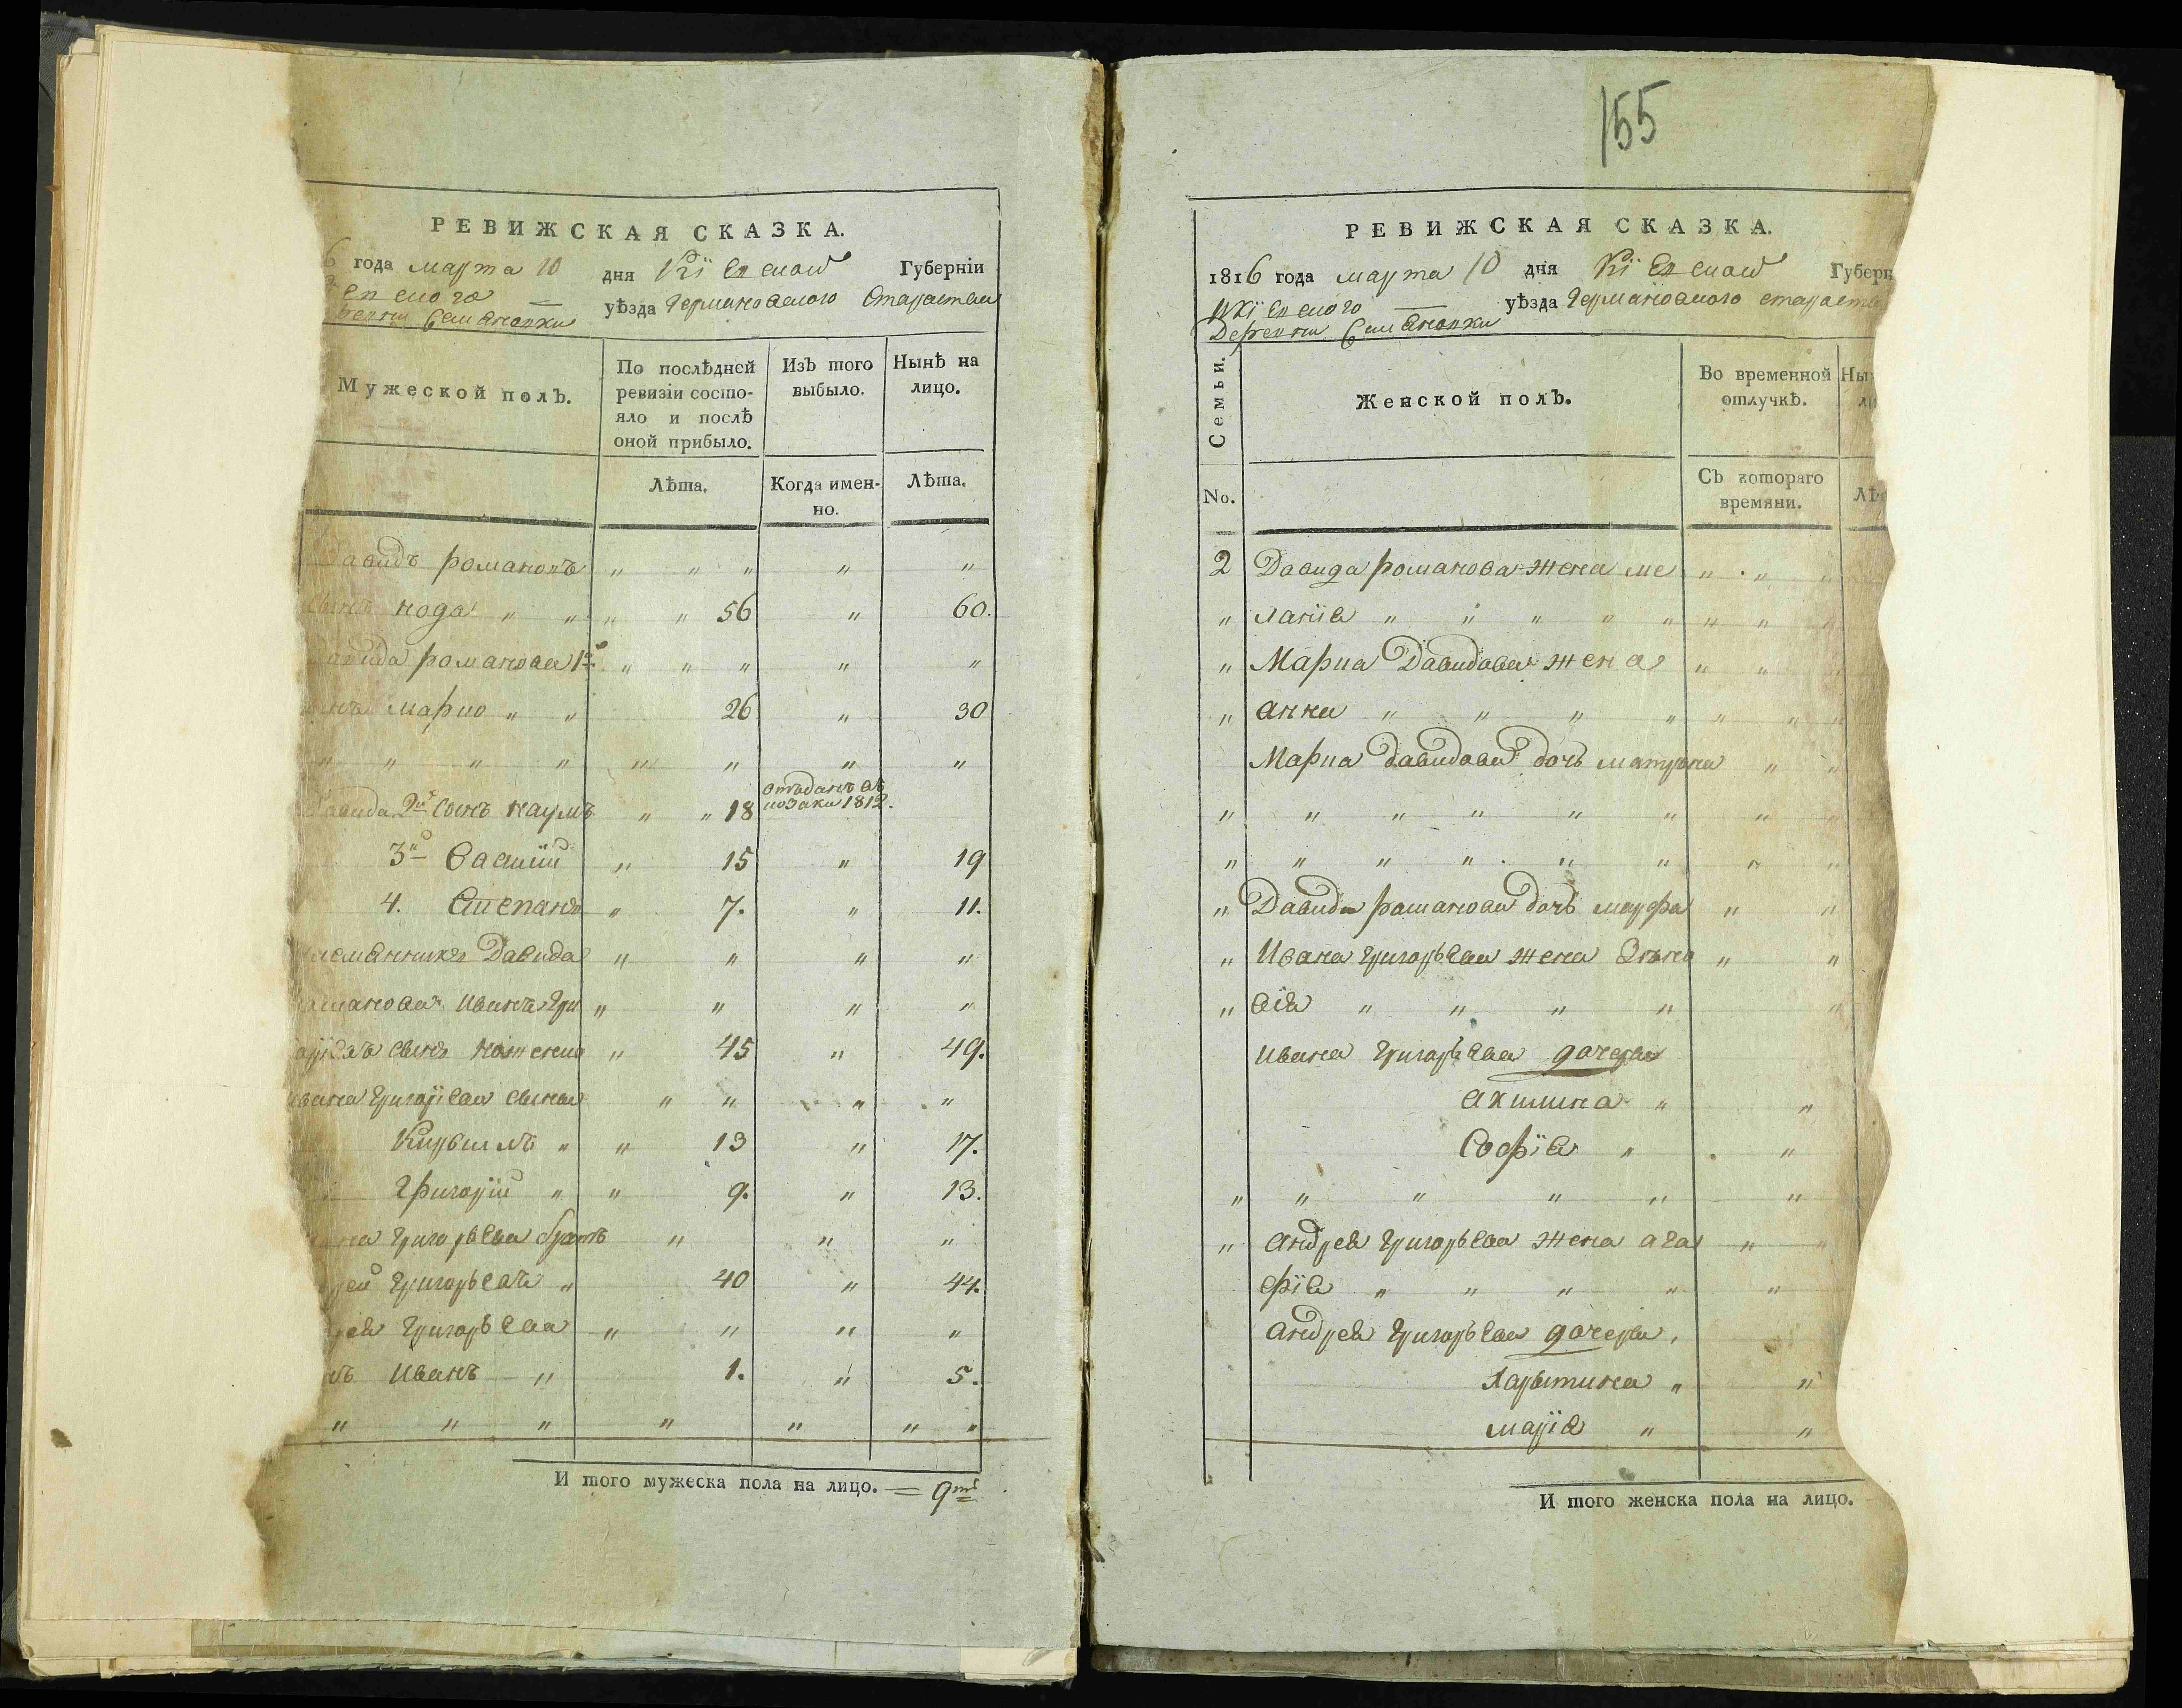 РЕВИЖСКАЯ СКАЗКА.
6 года марта 10 дня Кіевской Губерніи
евского — уѣзда Германовского Староства
ревни Семеновки
Мужеской полъ.
По послѣдней ревизіи состо-
яло и послѣ
оной прибыло.
Изъ того
выбыло.
Нынѣ на
лицо.
Лѣта.
Когда имен-
но.
Лѣта.
Давидъ романовъ " " " " "
сынъ " " " " 56 " 60.
Давида романова 1й " " " " "
марко " " 26 " 30
" " " " " " " "
Давида 2й сынъ наумъ " " 18 отъданъ въ козаки 1812.
3й Василій " 15 " 19
4. Степанъ " 7. " 11.
племянникъ Давида " " " "
романова Иванъ Гри " " " "
горьевъ сынъ " 45 " 49.
Ивана Григорьева сынои " " " "
Кирылъ " " 13 " 17.
Григорій " " 9. " 13.
Григорьева братъ " " "
рей Григорьевъ " 40 " 44.
рея Григорьева " " " "
нъ Иванъ " 1. " 5.
" " " " " " "
И того мужеска пола на лицо. = 9ть
155
РЕВИЖСКАЯ СКАЗКА.
1816 года марта 10 дня Кіевской Губерн
Кіевского — уѣзда Германовского староств
Деревни Семеновки
Семьи.
No.
Женской полъ.
Во временной
отлучкѣ.
Съ котораго
времяни.
Ны
ли
Лѣ
2 Давида романова жена ме " " "
" ланія " " " " " " " "
" Марка Давидова жена " " "
" анна " " " " " " "
Марка Давидова дочь матрына " "
" " " " " " " "
" " " " " " " "
" Давида романова дочь марфа " "
" Ивана Григорьева жена " "
" сія " " " " "
Ивана Григорьева дочери
акилина " "
Софія " "
" " " " " "
" андрея Григорьева жена ага " "
фія " " " " "
андрея Григорьева дочери,
марія " "
И того женска пола на лицо.